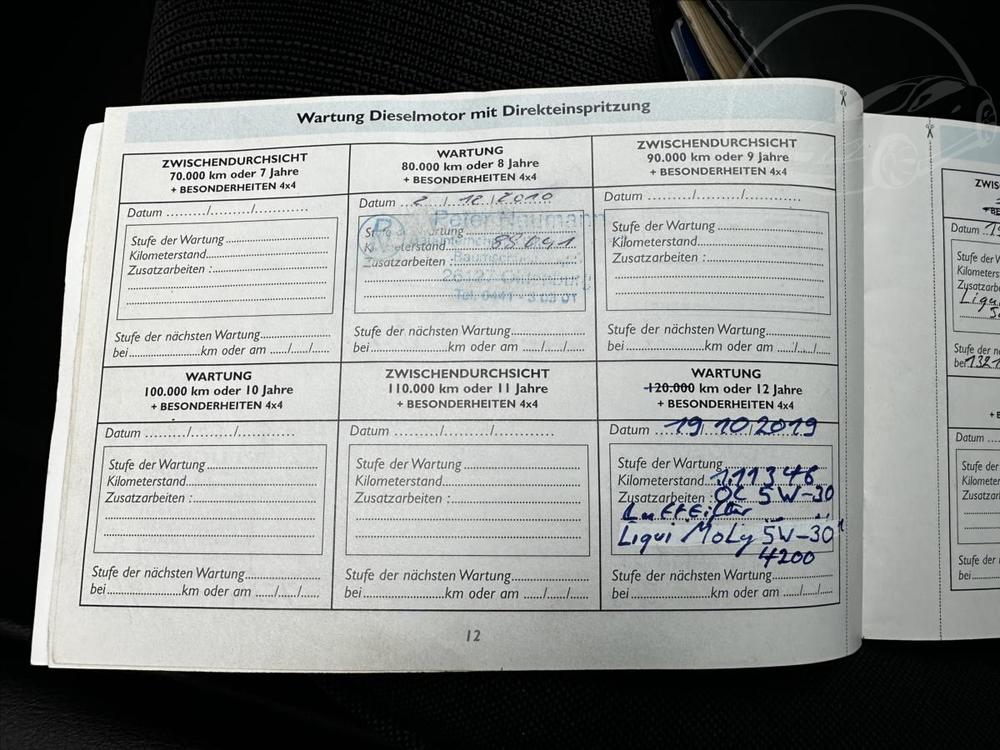 Wartung Dieselmotor mit Direkteinspritzung
ZWISCHENDURCHSICHT
70.000 km oder 7 Jahre
+ BESONDERHEITEN 4x4
Datum ........./........./............
Stufe der Wartung
Kilometerstand
Zusatzarbeiten :
Stufe der nächsten Wartung
bei......................km oder am ....../....../......
WARTUNG
80.000 km oder 8 Jahre
+ BESONDERHEITEN 4x4
Datum 2 / 12 / 2010
Peter Neumann
Kilometerstand
Zusatzarbeiten :
26127 Oldenburg
Stufe der nächsten Wartung
bei......................km oder am ....../....../......
ZWISCHENDURCHSICHT
90.000 km oder 9 Jahre
+ BESONDERHEITEN 4x4
Datum ........./........./............
Stufe der Wartung
Kilometerstand
Zusatzarbeiten :
Stufe der nächsten Wartung
bei......................km oder am ....../....../......
WARTUNG
100.000 km oder 10 Jahre
+ BESONDERHEITEN 4x4
Datum ........./........./............
Stufe der Wartung
Kilometerstand
Zusatzarbeiten :
Stufe der nächsten Wartung
bei......................km oder am ....../....../......
ZWISCHENDURCHSICHT
110.000 km oder 11 Jahre
+ BESONDERHEITEN 4x4
Datum ........./........./............
Stufe der Wartung
Kilometerstand
Zusatzarbeiten :
Stufe der nächsten Wartung
bei......................km oder am ....../....../......
WARTUNG
120.000 km oder 12 Jahre
+ BESONDERHEITEN 4x4
Datum 19/10/2019
Stufe der Wartung
Kilometerstand 111346
Zusatzarbeiten : OC 5W-30
Liqui Moly 5W-30
4200
Stufe der nächsten Wartung
bei......................km oder am ....../....../......
12
Datum
Kilometerstand
Datum